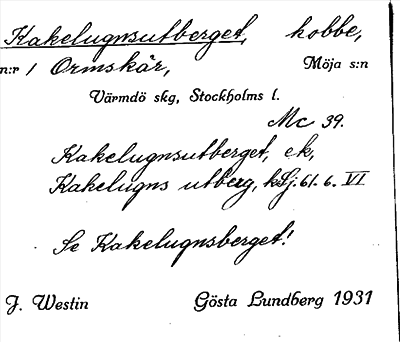 Kakelugnsutberget, hobbe,
n:r 1 Ormskär, Möja s:n
Värmdö skg, Stockholms l.
Mc 39.
Kakelugnsutberget, ek,
Kakelugns utberg, kSj. 61. 6. VI
Se Kakelugnsberget!
J. Westin Gösta Lundberg 1931